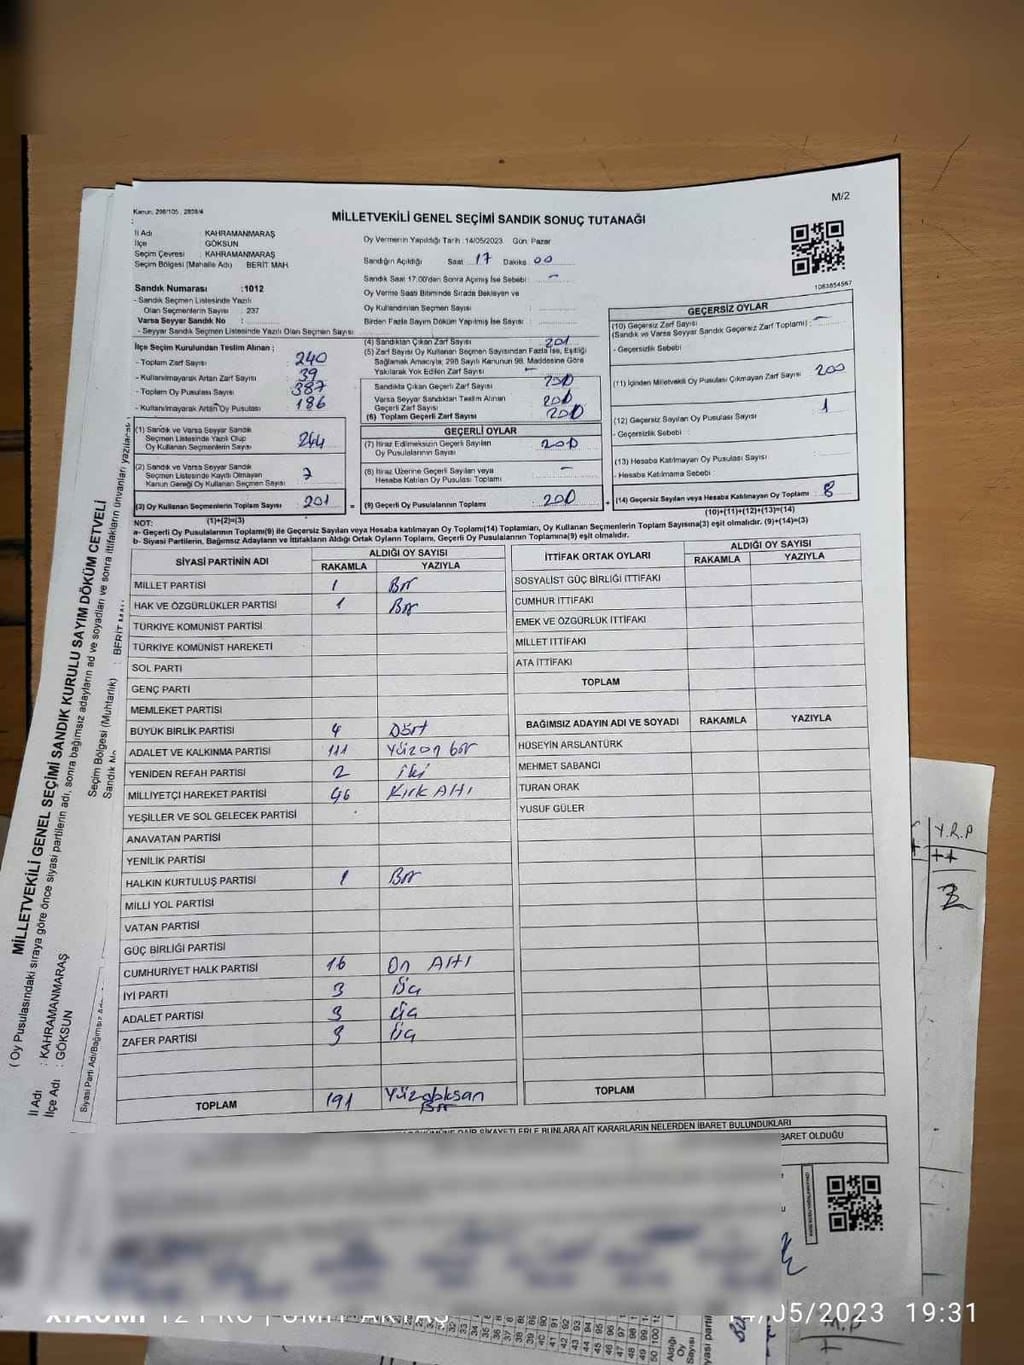 M/2
Kanun: 298/105 ; 2839/4
MİLLETVEKİLİ GENEL SEÇİMİ SANDIK SONUÇ TUTANAĞI
İl Adı KAHRAMANMARAŞ
İlçe GÖKSUN
Seçim Çevresi KAHRAMANMARAŞ
Seçim Bölgesi (Mahalle Adı) BERİT MAH
Oy Vermenin Yapıldığı Tarih :14/05/2023 Gün: Pazar
Sandığın Açıldığı Saat 17 Dakika 00
Sandık Saat 17:00'den Sonra Açılmış İse Sebebi : -
Oy Verme Saati Bitiminde Sırada Bekleyen ve
Oy Kullandırılan Seçmenlerin Sayısı
Birden Fazla Sayım Döküm Yapılmış İse Sayısı :
1083854567
Sandık Numarası :1012
- Sandık Seçmen Listesinde Yazılı
Olan Seçmenlerin Sayısı : 237
Varsa Seyyar Sandık No :
- Seyyar Sandık Seçmen Listesinde Yazılı Olan Seçmen Sayısı
İlçe Seçim Kurulundan Teslim Alınan ;
- Toplam Zarf Sayısı 240
- Kullanılmayarak Artan Zarf Sayısı 39
- Toplam Oy Pusulası Sayısı 387
- Kullanılmayarak Artan Oy Pusulası 186
(1) Sandık ve Varsa Seyyar Sandık
Seçmen Listesinde Yazılı Olup
Oy Kullanan Seçmenlerin Sayısı
(2) Sandık ve Varsa Seyyar Sandık
Seçmen Listesinde Kayıtlı Olmayan
Kanun Gereği Oy Kullanan Seçmen Sayısı 7
(3) Oy Kullanan Seçmenlerin Toplam Sayısı 201
(1)+(2)=(3)
(4) Sandıktan Çıkan Zarf Sayısı 201
(5) Zarf Sayısı Oy Kullanan Seçmen Sayısından Fazla İse, Eşitliği
Sağlamak Amacıyla; 298 Sayılı Kanunun 98. Maddesine Göre
Yakılarak Yok Edilen Zarf Sayısı -
Sandıkta Çıkan Geçerli Zarf Sayısı 200
Varsa Seyyar Sandıktan Teslim Alınan
Geçerli Zarf Sayısı 200
(6) Toplam Geçerli Zarf Sayısı 200
GEÇERLİ OYLAR
(7) İtiraz Edilmeksizin Geçerli Sayılan
Oy Pusulalarının Sayısı 200
(8) İtiraz Üzerine Geçerli Sayılan veya
Hesaba Katılan Oy Pusulası Toplamı -
= (9) Geçerli Oy Pusulalarının Toplamı 200
GEÇERSİZ OYLAR
(10) Geçersiz Zarf Sayısı -
(Sandık ve Varsa Seyyar Sandık Geçersiz Zarf Toplamı) :
- Geçersizlik Sebebi
(11) İçinden Milletvekili Oy Pusulası Çıkmayan Zarf Sayısı 200
(12) Geçersiz Sayılan Oy Pusulası Sayısı 1
- Geçersizlik Sebebi :
(13) Hesaba Katılmayan Oy Pusulası Sayısı
- Hesaba Katılmama Sebebi :
+ (14) Geçersiz Sayılan veya Hesaba Katılmayan Oy Toplamı 8
(10)+(11)+(12)+(13)=(14)
NOT:
a- Geçerli Oy Pusulalarının Toplamı(9) ile Geçersiz Sayılan veya Hesaba katılmayan Oy Toplamı(14) Toplamları, Oy Kullanan Seçmenlerin Toplam Sayısına(3) eşit olmalıdır. (9)+(14)=(3)
b- Siyasi Partilerin, Bağımsız Adayların ve İttifakların Aldığı Ortak Oyların Toplamı, Geçerli Oy Pusulalarının Toplamına(9) eşit olmalıdır.
SİYASİ PARTİNİN ADI ALDIĞI OY SAYISI
RAKAMLA YAZIYLA
MİLLET PARTİSİ 1 Bir
HAK VE ÖZGÜRLÜKLER PARTİSİ 1 Bir
TÜRKİYE KOMÜNİST PARTİSİ
TÜRKİYE KOMÜNİST HAREKETİ
SOL PARTİ
GENÇ PARTİ
MEMLEKET PARTİSİ
BÜYÜK BİRLİK PARTİSİ 4 Dört
ADALET VE KALKINMA PARTİSİ 111 Yüzon bir
YENİDEN REFAH PARTİSİ 2 iki
MİLLİYETÇİ HAREKET PARTİSİ 46 Kırk Altı
YEŞİLLER VE SOL GELECEK PARTİSİ
ANAVATAN PARTİSİ
YENİLİK PARTİSİ
HALKIN KURTULUŞ PARTİSİ 1 Bir
MİLLİ YOL PARTİSİ
VATAN PARTİSİ
GÜÇ BİRLİĞİ PARTİSİ
CUMHURİYET HALK PARTİSİ 16 On Altı
İYİ PARTİ 3 Üç
ADALET PARTİSİ 3 Üç
ZAFER PARTİSİ 3 Üç
TOPLAM 191 Yüzdoksan
Bir
İTTİFAK ORTAK OYLARI ALDIĞI OY SAYISI
RAKAMLA YAZIYLA
SOSYALİST GÜÇ BİRLİĞİ İTTİFAKI
CUMHUR İTTİFAKI
EMEK VE ÖZGÜRLÜK İTTİFAKI
MİLLET İTTİFAKI
ATA İTTİFAKI
TOPLAM
BAĞIMSIZ ADAYIN ADI VE SOYADI RAKAMLA YAZIYLA
HÜSEYİN ARSLANTÜRK
MEHMET SABANCI
TURAN ORAK
YUSUF GÜLER
TOPLAM
DAİR ŞİKAYETLERLE BUNLARA AİT KARARLARIN NELERDEN İBARET BULUNDUKLARI
BARET OLDUĞU
MİLLETVEKİLİ GENEL SEÇİMİ SANDIK KURULU SAYIM DÖKÜM CETVELİ
( Oy Pusulasındaki sıraya göre önce siyasi partilerin adı, sonra bağımsız adayların ad ve soyadları ve sonra ittifakların ünvanları yazılarak
İl Adı : KAHRAMANMARAŞ
İlçe Adı : GÖKSUN
Seçim Bölgesi (Muhtarlık) : BERİT MAH
Sandık No
Siyasi Parti Adı/Bağımsız
Y.R.P
++
2
Aldığı
Oy
Sayısı
14/05/2023 19:31